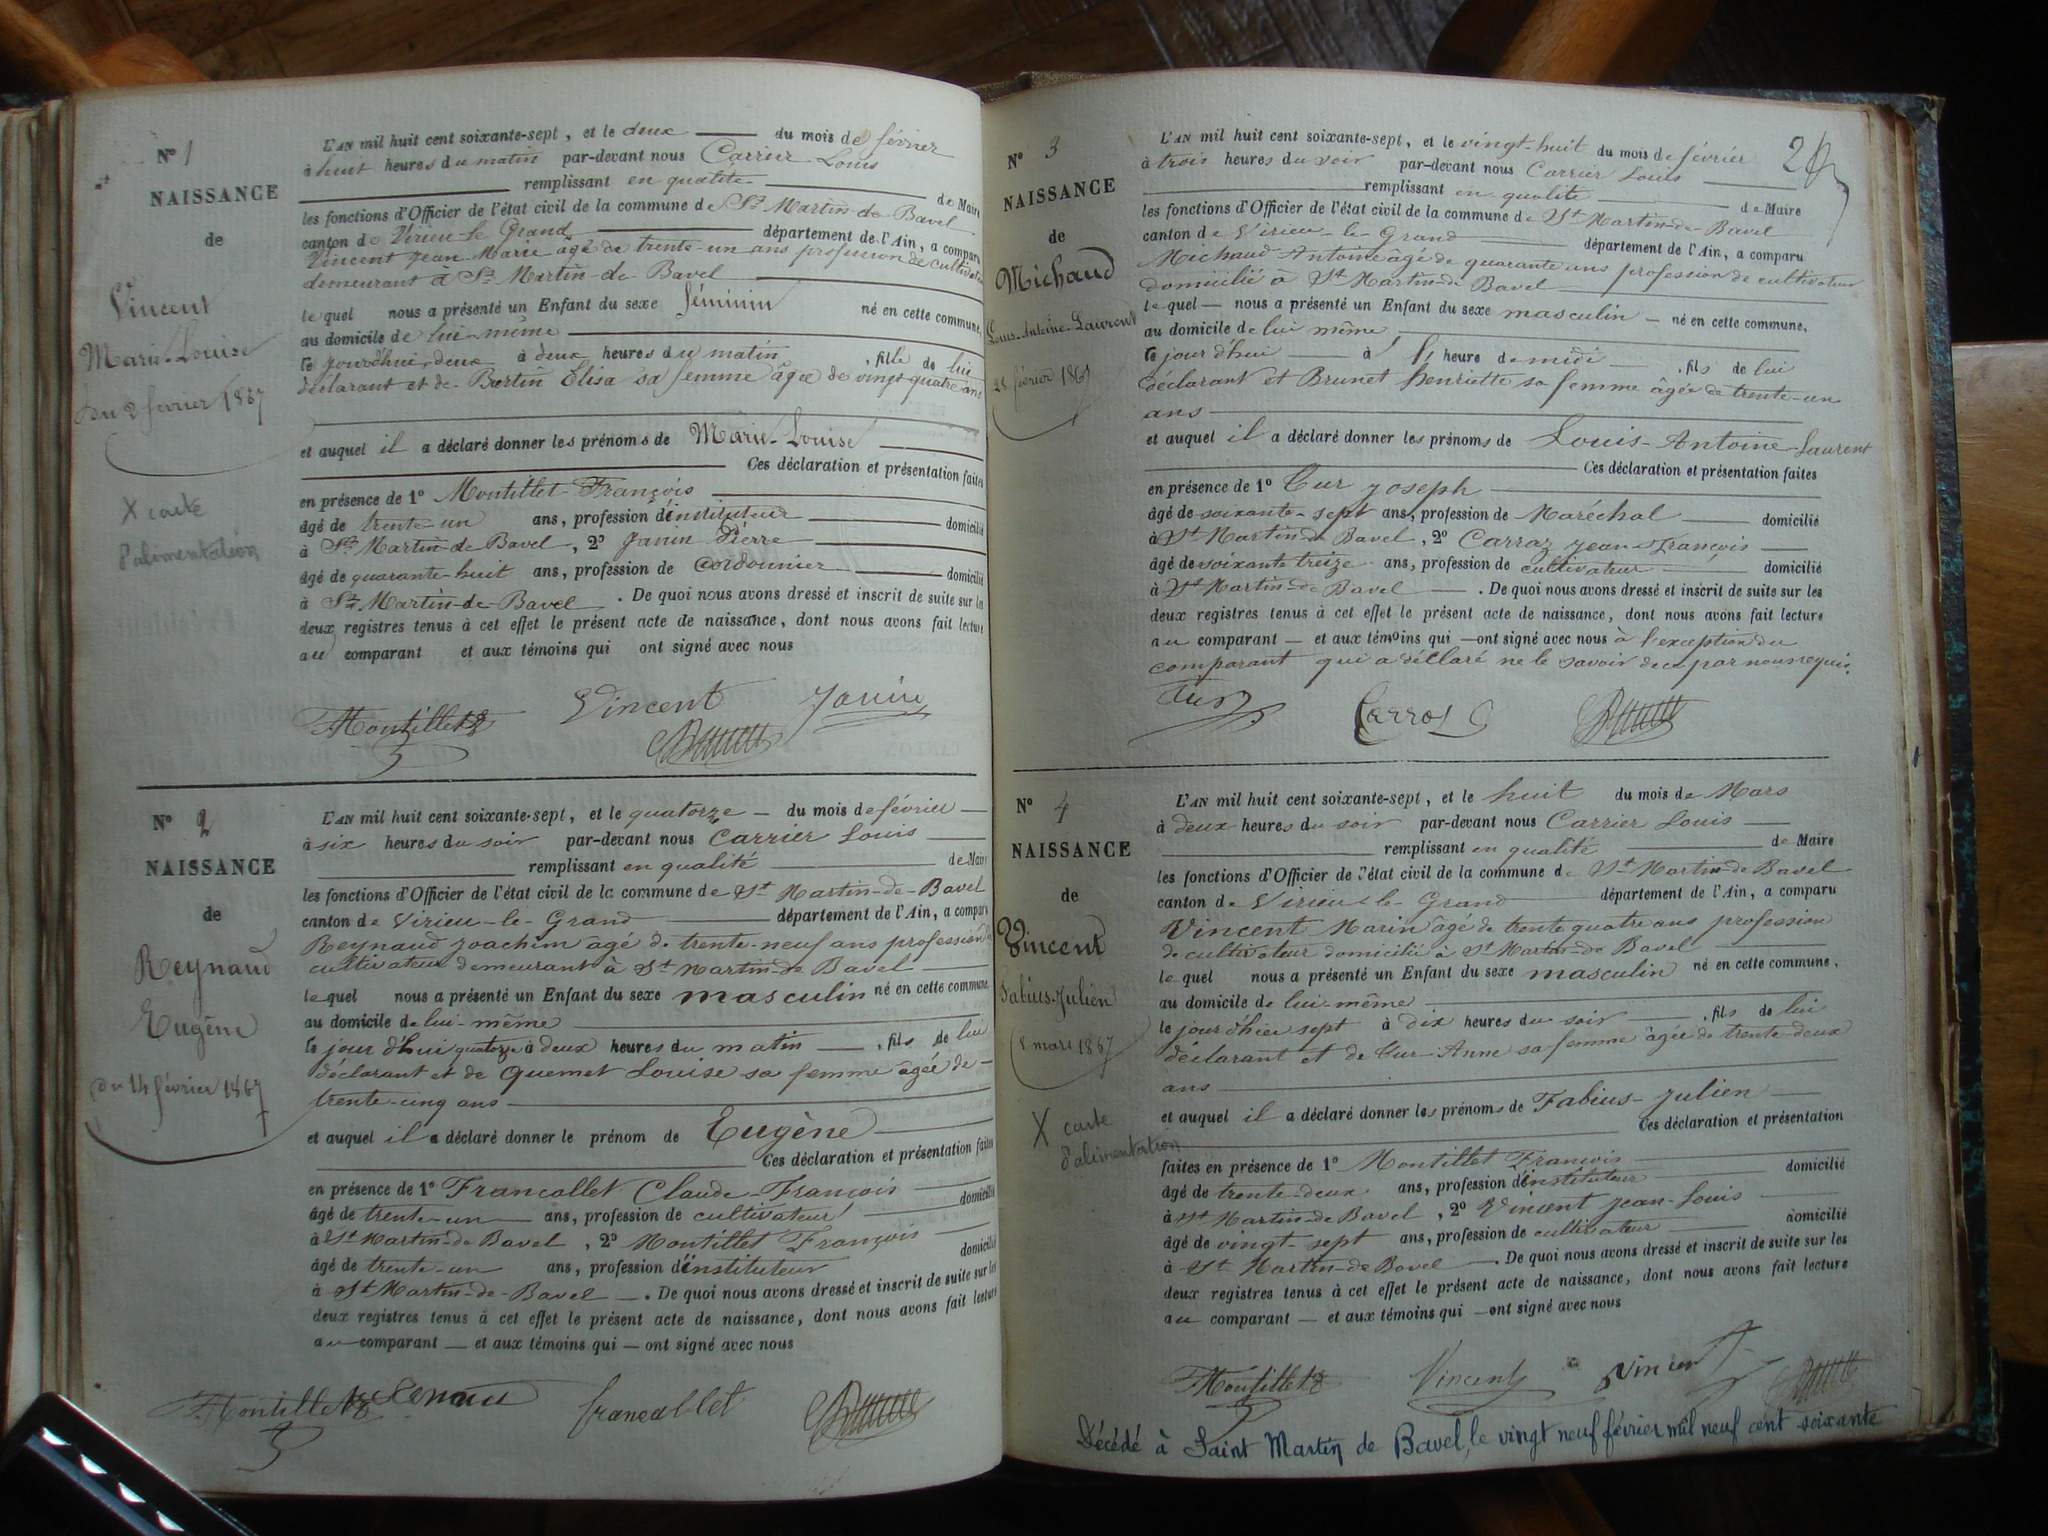 N° 1
NAISSANCE
de
Vincent
Marie-Louise
Du 2 février 1867
X carte
d'alimentation
L'AN mil huit cent soixante-sept, et le deux du mois de février
à huit heures du matin par-devant nous Carrier Louis
remplissant en qualité de Maire
les fonctions d'Officier de l'état civil de la commune de St Martin-de-Bavel
canton de Virieu-le Grand département de l'Ain, a comparu
Vincent Jean Marie âgé de trente-un ans profession de cultivateur
demeurant à St Martin-de Bavel
le quel nous a présenté un Enfant du sexe féminin né en cette commune,
au domicile de lui-même
le jourd'hui deux à deux heures du matin, fille de lui
déclarant et de Bertin Elisa sa femme âgée de vingt quatre ans
et auquel il a déclaré donner les prénoms de Marie-Louise
Ces déclaration et présentation faites
en présence de 1° Montillet François
âgé de trente-un ans, profession d'instituteur domicilié
à St Martin-de Bavel, 2° Janin Pierre
âgé de quarante-huit ans, profession de Cordonnier domicilié
à St Martin-de-Bavel. De quoi nous avons dressé et inscrit de suite sur les
deux registres tenus à cet effet le présent acte de naissance, dont nous avons fait lecture
au comparant et aux témoins qui ont signé avec nous
Montillet Vincent Janin
N° 2
NAISSANCE
de
Reynaud
Eugène
du 14 février 1867
L'AN mil huit cent soixante-sept, et le quatorze — du mois de février
à six heures du soir par-devant nous Carrier Louis
remplissant en qualité de Maire
les fonctions d'Officier de l'état civil de la commune de St Martin-de-Bavel
canton de Virieu-le-Grand département de l'Ain, a comparu
Reynaud Joachim âgé de trente-neuf ans profession de
cultivateur demeurant à St Martin-de Bavel
le quel nous a présenté un Enfant du sexe masculin né en cette commune,
au domicile de lui-même
le jour d'hui quatorze à deux heures du matin, fils de lui
déclarant et de Quemet Louise sa femme âgée de
trente-cinq ans
et auquel il a déclaré donner le prénom de Eugène
Ces déclaration et présentation faites
en présence de 1° Francallet Claude-François
âgé de trente-un ans, profession de cultivateur domicilié
à St Martin-de Bavel, 2° Montillet François
âgé de trente-un ans, profession d'instituteur domicilié
à St Martin-de-Bavel. De quoi nous avons dressé et inscrit de suite sur les
deux registres tenus à cet effet le présent acte de naissance, dont nous avons fait lecture
au comparant — et aux témoins qui — ont signé avec nous
Montillet francallet
N° 3
NAISSANCE
de
Michaud
Louis-Antoine-Laurent
28 février 1867
L'AN mil huit cent soixante-sept, et le vingt-huit du mois de février
à trois heures du soir par-devant nous Carrier Louis
remplissant en qualité de Maire
les fonctions d'Officier de l'état civil de la commune de St Martin-de-Bavel
canton de Virieu-le-Grand département de l'Ain, a comparu
Michaud Antoine âgé de quarante ans profession de cultivateur
domicilié à St Martin-de Bavel
le quel — nous a présenté un Enfant du sexe masculin — né en cette commune,
au domicile de lui même
le jour d'hui à heure de midi, fils de lui
déclarant et Brunet henriette sa femme âgée de trente-un
ans
et auquel il a déclaré donner les prénoms de Louis-Antoine-Laurent
Ces déclaration et présentation faites
en présence de 1° Cur Joseph
âgé de soixante-sept ans, profession de Maréchal domicilié
à St Martin de Bavel, 2° Carraz Jean-François
âgé de soixante treize ans, profession de cultivateur domicilié
à St Martin-de Bavel. De quoi nous avons dressé et inscrit de suite sur les
deux registres tenus à cet effet le présent acte de naissance, dont nous avons fait lecture
au comparant — et aux témoins qui — ont signé avec nous à l'exception du
comparant qui a déclaré ne le savoir de ce par nous requis.
Cur
N° 4
NAISSANCE
de
Vincent
Fabius-Julien
8 mars 1867
X carte
d'alimentation
L'AN mil huit cent soixante-sept, et le huit du mois de Mars
à deux heures du soir par-devant nous Carrier Louis
remplissant en qualité de Maire
les fonctions d'Officier de l'état civil de la commune de St Martin-de Bavel
canton de Virieu-le-Grand département de l'Ain, a comparu
Vincent Marin âgé de trente quatre ans profession
de cultivateur domicilié à St Martin-de Bavel
le quel nous a présenté un Enfant du sexe masculin né en cette commune,
au domicile de lui-même
le jour d'hier sept à dix heures du soir, fils de lui
déclarant et de Cur Anne sa femme âgée de trente-deux
ans
et auquel il a déclaré donner les prénoms de Fabius-Julien
Ces déclaration et présentation
faites en présence de 1° Montillet François
âgé de trente-deux ans, profession d'instituteur domicilié
à St Martin-de Bavel, 2° Vincent Jean-Louis
âgé de vingt-sept ans, profession de cultivateur domicilié
à St Martin-de Bavel. De quoi nous avons dressé et inscrit de suite sur les
deux registres tenus à cet effet le présent acte de naissance, dont nous avons fait lecture
au comparant — et aux témoins qui — ont signé avec nous
Montillet Vincent Vincent
Décédé à Saint Martin de Bavel, le vingt neuf février mil neuf cent soixante